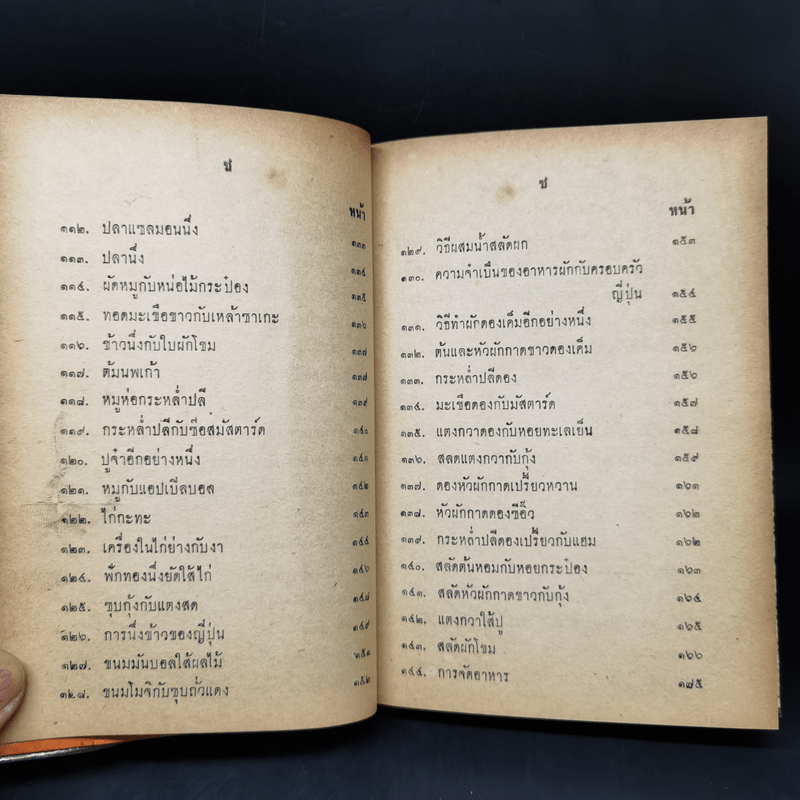 ช
หน้า
๑๑๒. ปลาแซลมอนนึ่ง ๑๓๓
๑๑๓. ปลานึ่ง ๑๓๔
๑๑๔. ผัดหมูกับหน่อไม้กระป๋อง ๑๓๕
๑๑๕. ทอดมะเขือขาวกับเหล้าซาเกะ ๑๓๖
๑๑๖. ข้าวนึ่งกับใบผักโขม ๑๓๗
๑๑๗. ต้มนพเก้า ๑๓๗
๑๑๘. หมูห่อกระหล่ำปลี ๑๓๙
๑๑๙. กระหล่ำปลีกับซ๊อสมัสตาร์ด ๑๔๐
๑๒๐. ปูจ๋าอีกอย่างหนึ่ง ๑๔๑
๑๒๑. หมูกับแอปเปิลบอล ๑๔๒
๑๒๒. ไก่กะทะ ๑๔๓
๑๒๓. เครื่องในไก่ย่างกับงา ๑๔๔
๑๒๔. ฟักทองนึ่งยัดใส้ไก่ ๑๔๖
๑๒๕. ซุบกุ้งกับแตงสด ๑๔๗
๑๒๖. การนึ่งข้าวของญี่ปุ่น ๑๔๙
๑๒๗. ขนมมันบอลใส้ผลไม้ ๑๕๑
๑๒๘. ขนมโมจิกับซุบถั่วแดง ๑๕๒
ซ
หน้า
๑๒๙. วิธีผสมน้ำสลัดผัก ๑๕๓
๑๓๐. ความจำเป็นของอาหารผักกับครอบครัว
ญี่ปุ่น ๑๕๔
๑๓๑. วิธีทำผักดองเค็มอีกอย่างหนึ่ง ๑๕๕
๑๓๒. ต้นและหัวผักกาดขาวดองเค็ม ๑๕๖
๑๓๓. กระหล่ำปลีดอง ๑๕๖
๑๓๔. มะเขือดองกับมัสตาร์ด ๑๕๗
๑๓๕. แตงกวาดองกับหอยทะเลเย็น ๑๕๘
๑๓๖. สลดแตงกวากับกุ้ง ๑๕๙
๑๓๗. ดองหัวผักกาดเปรี้ยวหวาน ๑๖๑
๑๓๘. หัวผักกาดดองซีอิ๊ว ๑๖๒
๑๓๙. กระหล่ำปลีดองเปรี้ยวกับแฮม ๑๖๒
๑๔๐. สลัดต้นหอมกับหอยกระป๋อง ๑๖๓
๑๔๑. สลัดหัวผักกาดขาวกับกุ้ง ๑๖๔
๑๔๒. แตงกวาใส้ปู ๑๖๕
๑๔๓. สลัดผักโขม ๑๖๖
๑๔๔. การจัดอาหาร ๑๗๕